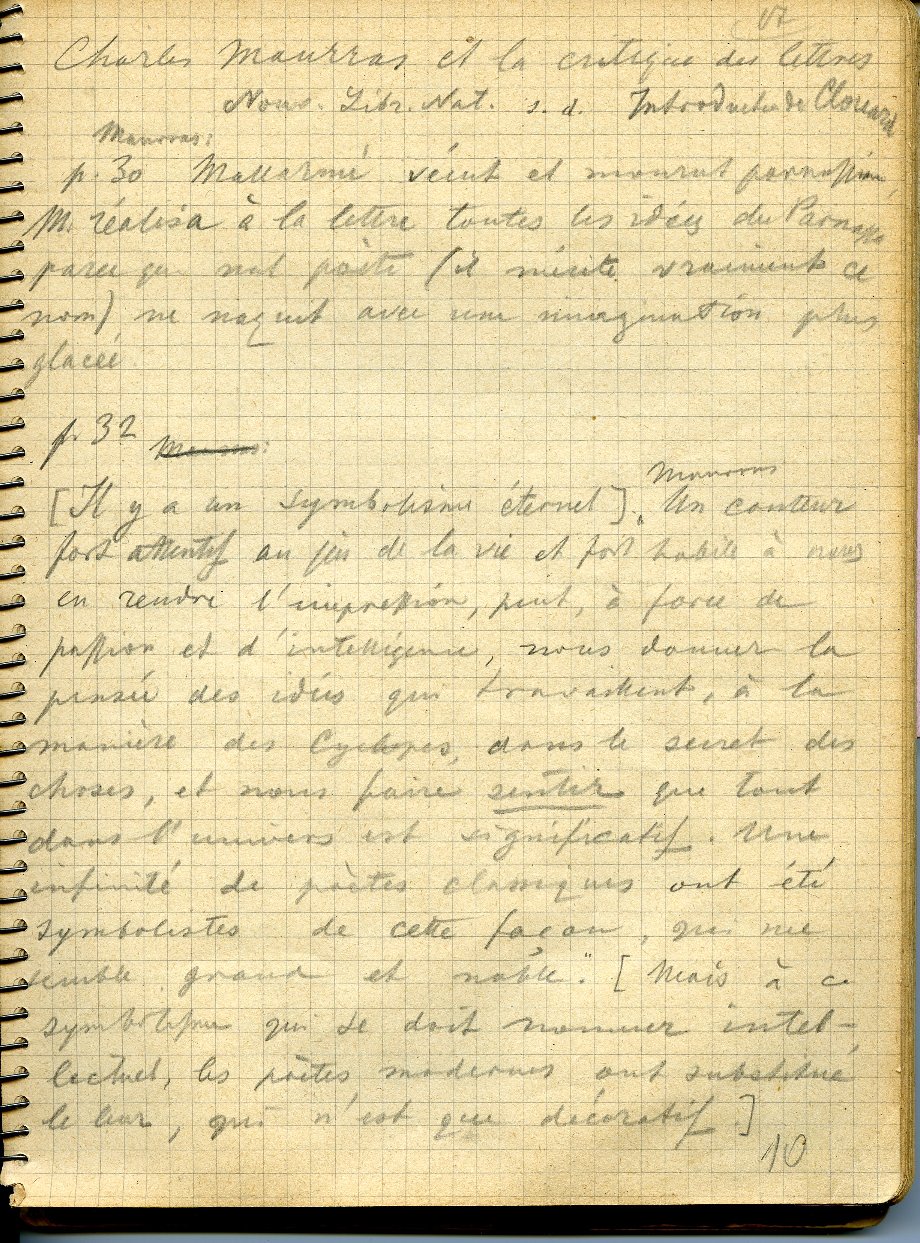 Charles Maurras et la critique des lettres
Nouv. Libr. Nat. s. d. Introduction de Clouard
Maurras:
p. 30 Mallarmé vécut et mourut parnassien,
M. réalisa à la lettre toutes les idées du Parnasse
parce que nul poète (il mérite vraiment ce
nom) ne naquit avec une imagination plus
glacée.
p. 32 Maurras:
Maurras
[Il y a un symbolisme éternel]. "Un conteur
fort attentif au jeu de la vie et fort habile à nous
en rendre l'impression, peut, à force de
passion et d'intelligence, nous donner la
pensée des idées qui travaillent, à la
manière des Cyclopes, dans le secret des
choses, et nous faire sentir que tout
dans l'univers est significatif. Une
infinité de poètes classiques ont été
symbolistes de cette façon, qui me
semble grand et noble." [Mais à ce
symbolisme qui se doit nommer intel-
lectuel, les poètes modernes ont substitué
le leur, qui n'est que décoratif.]
10